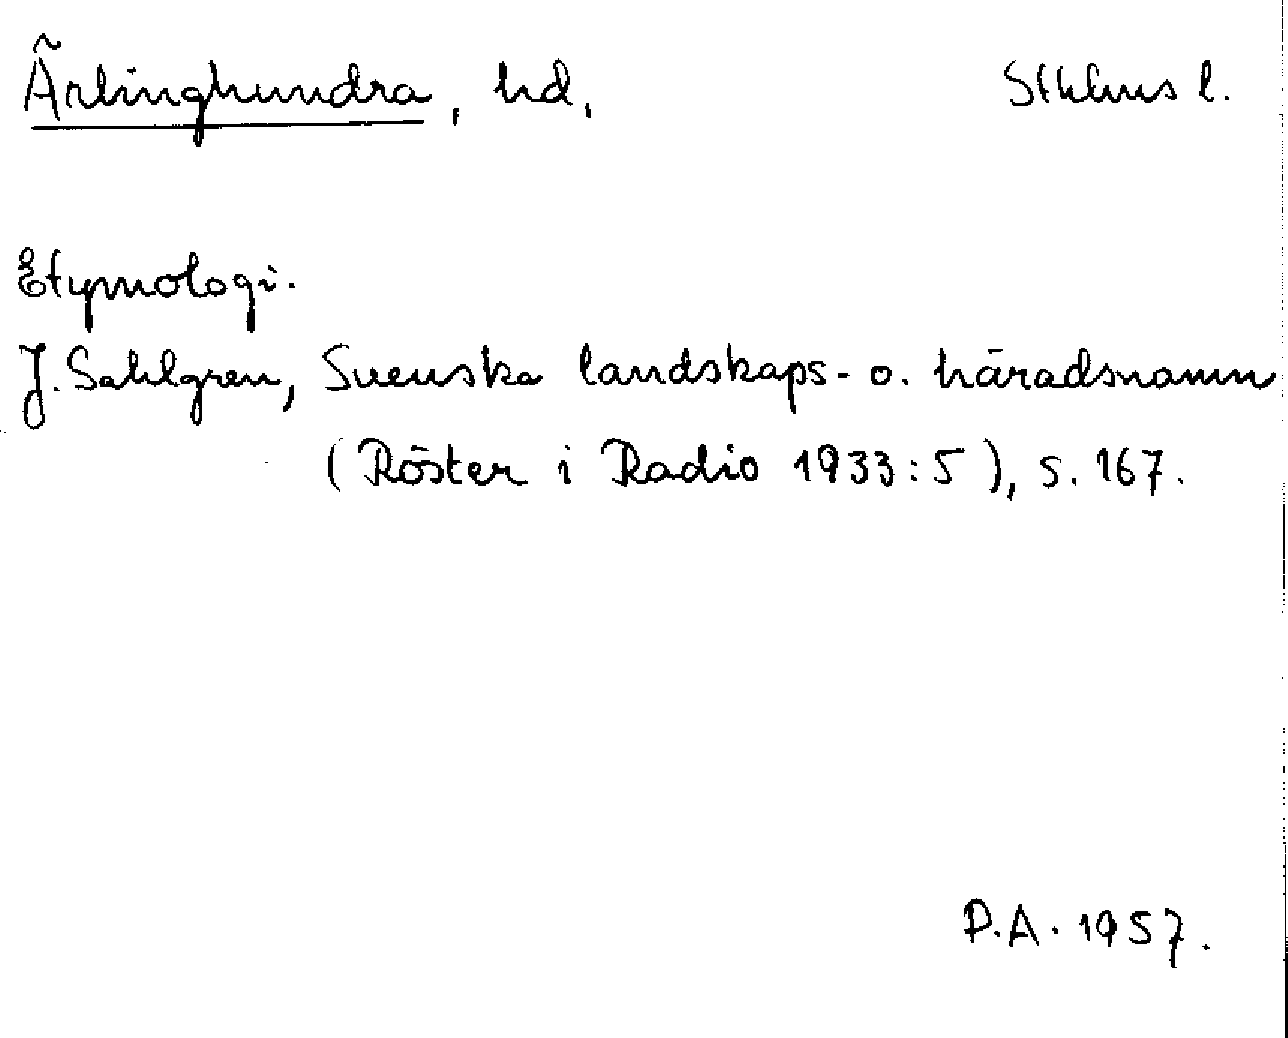 Ärlinghundra, hd,
Sthlms l.
Etymologi.
J. Sahlgren, Svenska landskaps- o. häradsnamn
(Röster i Radio 1933:5), s. 167.
P.A. 1957.